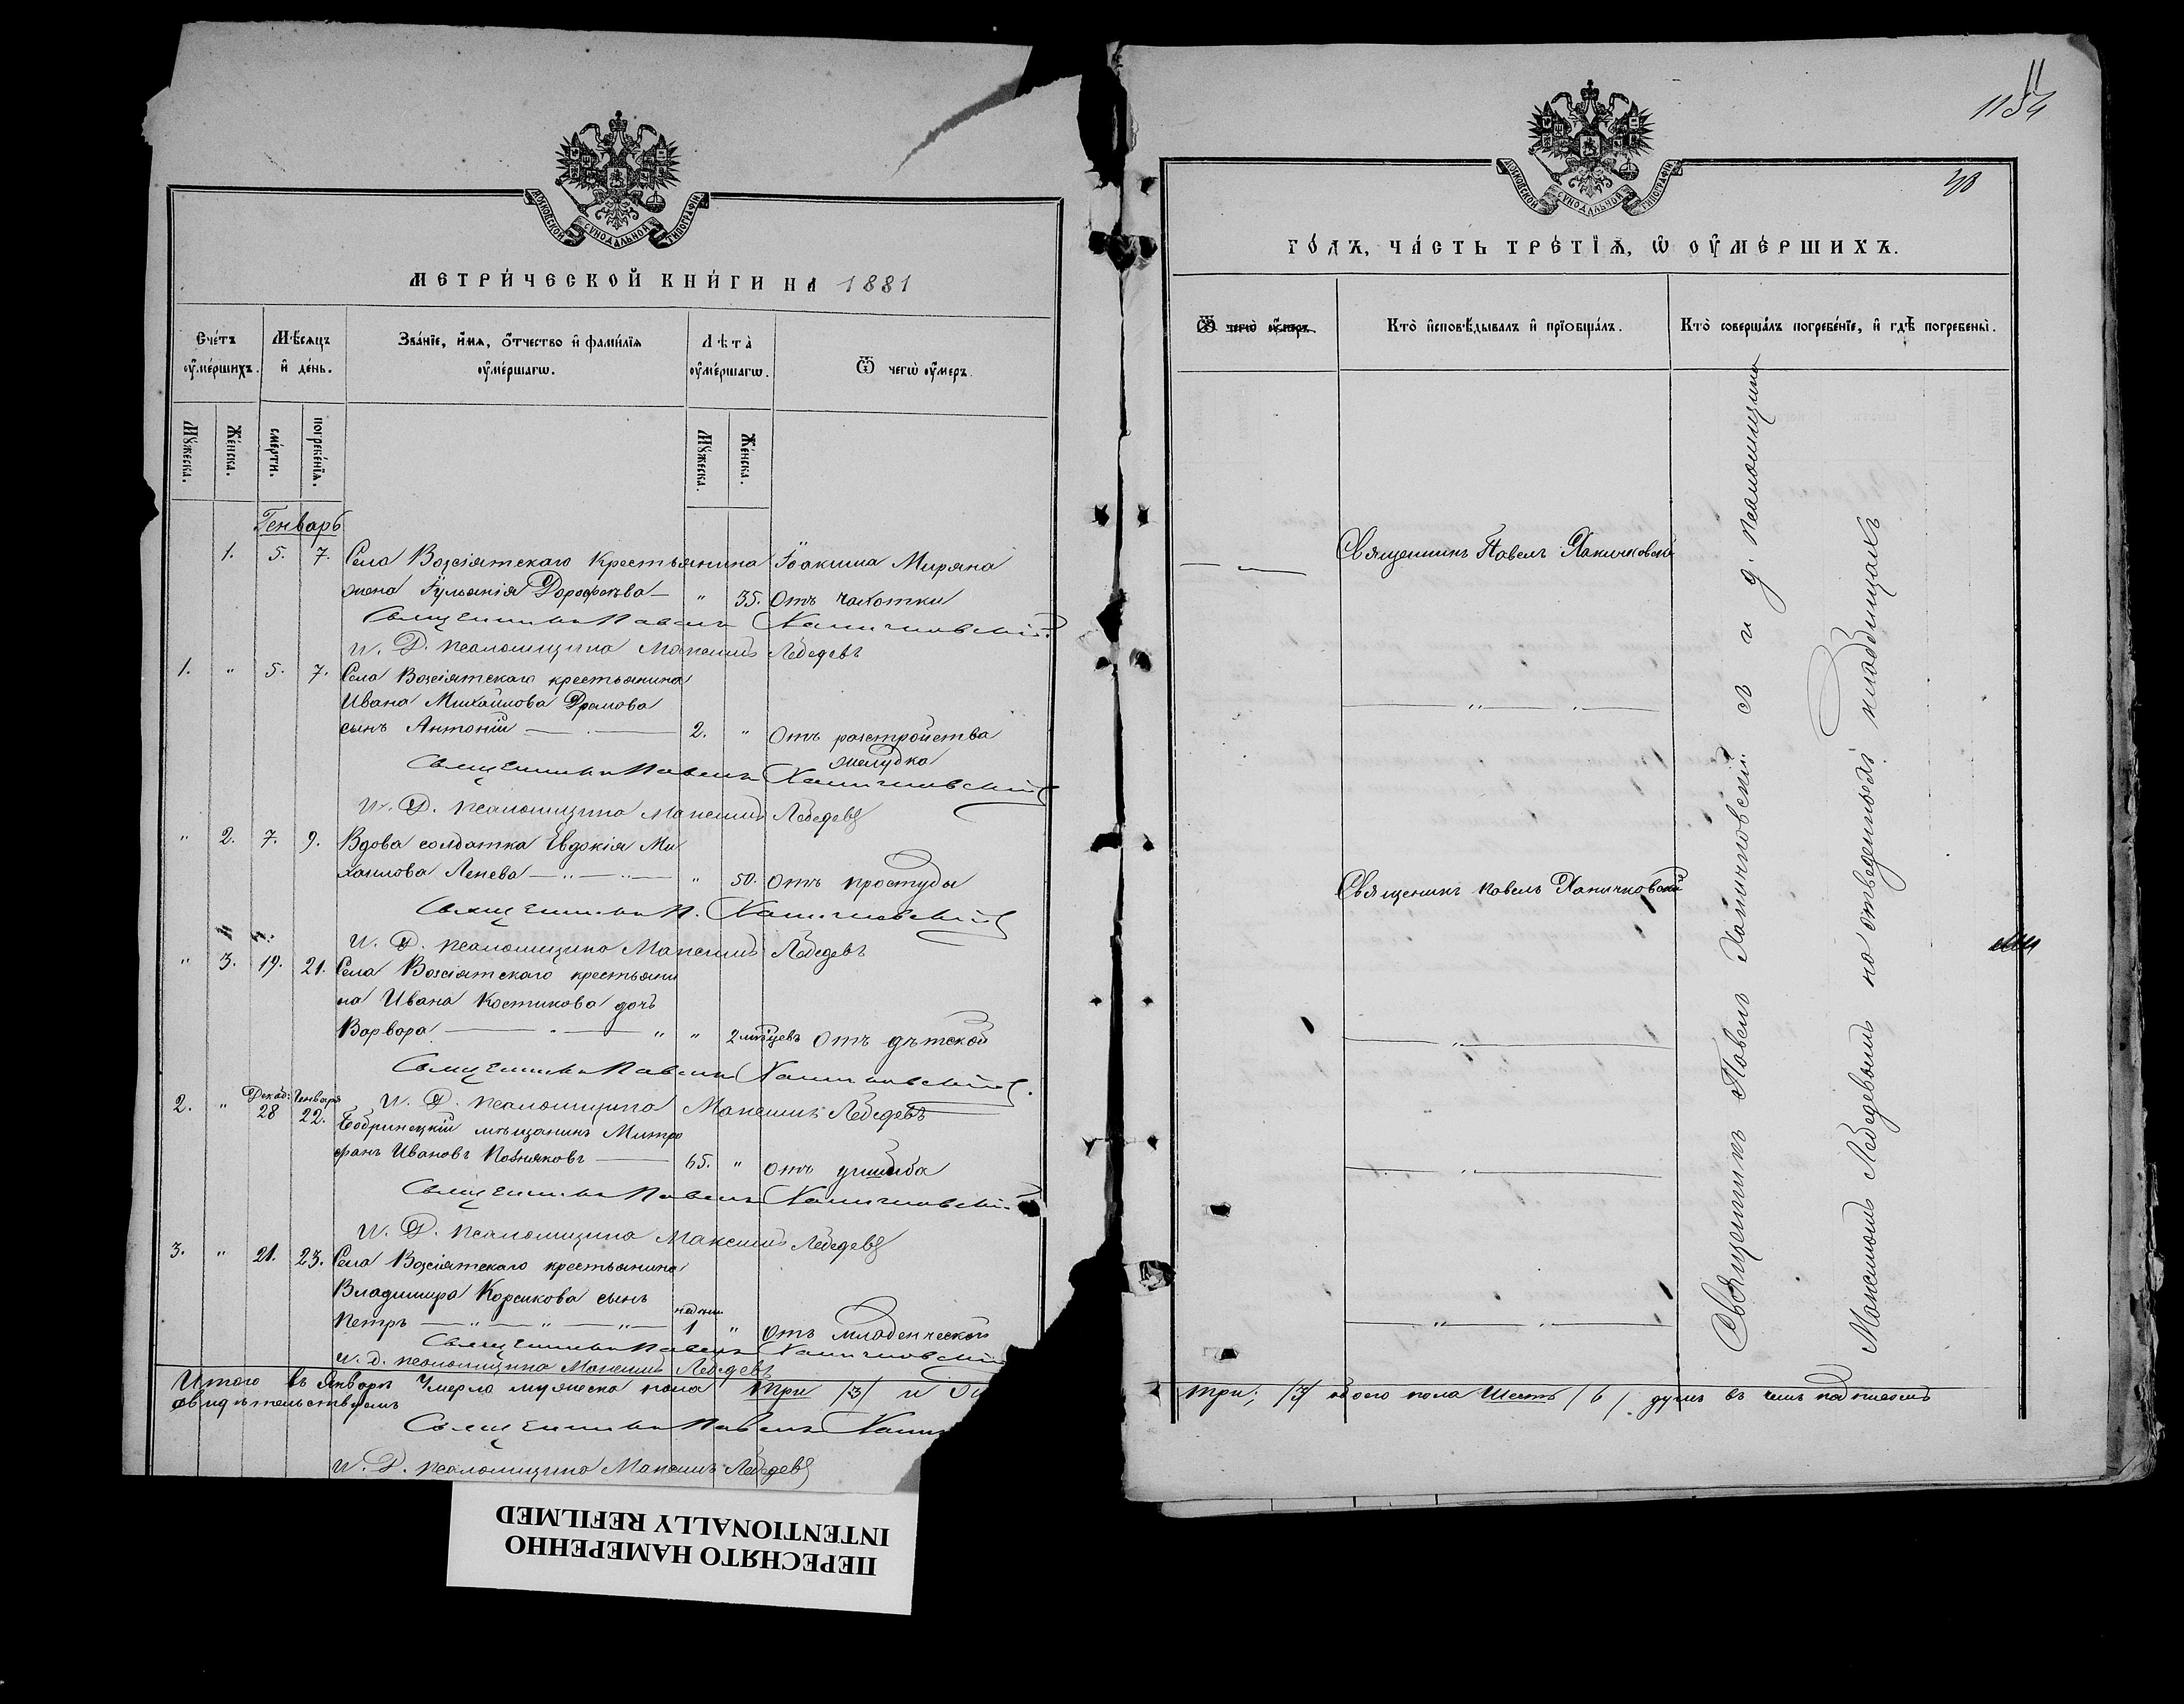 МОСКОВСКОЙ СѴНОДАЛЬНОЙ ТИПОГРАФІИ
МЕТРИ́ЧЕСКОЙ КНИ́ГИ НА 1881
Сче́тъ ᲂу҆ме́ршихъ.
Мѣ́сяцъ и҆ де́нь.
Зва́нїе, и҆́мѧ, ѻ҆́тчество и҆ фами́лїѧ ᲂу҆ме́ршагѡ.
Лѣ́та ᲂу҆ме́ршагѡ.
Ѿ чегѡ̀ ᲂу҆́меръ.
Мꙋ́жеска.
Же́нска.
сме́рти.
погребе́нїѧ.
Мꙋ́жеска.
Же́нска.
Генварь
1. 5. 7. Села Возсіятскаго крестьянина Іоакима Миряна
жена Іуліанія Дорофѣева — " 35. Отъ чахотки
Священникъ Павелъ Ханичковскій
И. Д. псаломщика Максимъ Лебедевъ
1. " 5. 7. Села Возсіятскаго крестьянина
Ивана Михайлова
сынъ Антоній — 2. " Отъ разстройства
желудка
Священникъ Павелъ Ханичковскій
И. Д. псаломщика Максимъ Лебедевъ
" 2. 7. 9. Вдова солдатка Евдокія Ми
хаилова Ленева — " — " — " 50. Отъ простуды
Священникъ П. Ханичковскій
И. Д. псаломщика Максимъ Лебедевъ
" 3. 19. 21. Села Возсіятскаго крестьяни
на Ивана Костикова дочь
Варвара — " " 2 мѣсяцевъ Отъ дѣтской
Священникъ Павелъ Ханичковскій
Декаб: Генваря
И. Д. псаломщика Максимъ Лебедевъ
2. " 28 22. Бобринецкій мѣщанинъ Митро
фанъ Ивановъ Позняковъ — 65. " отъ ушиба
Священникъ Павелъ Ханичковскій
И. Д. псаломщика Максимъ Лебедевъ
3. " 21. 23. Села Возсіятскаго крестьянина
Владимира Корсикова сынъ
Петръ — " — " — " — 1 " отъ младенческой
Священникъ Павелъ Ханичковскій
И. Д. псаломщика Максимъ Лебедевъ
Итого въ Январѣ умерло мужеска пола три /3/ и
свидѣтельствуемъ
Священникъ Павелъ
И. Д. псаломщика Максимъ Лебедевъ
ПЕРЕСНЯТО НАМЕРЕННО
INTENTIONALLY REFILMED
11
1154
МОСКОВСКОЙ СѴНОДАЛЬНОЙ ТИПОГРАФІИ
ГО́ДЪ, ЧА́СТЬ ТРЕ́ТЇѦ, Ѡ҆ ОУ҆МЕ́РШИХЪ.
Ѿ чегѡ̀ ᲂу҆́меръ.
Кто̀ и҆сповѣ́дывалъ и҆ прїобща́лъ.
Кто̀ соверша́лъ погребе́нїе, и҆ гдѣ̀ погребены̀.
Священникъ Павелъ Ханичковскій
Священикъ Павелъ Ханичковскій
Священникъ Павелъ Ханичковскій съ и д. псаломщика
Максимомъ Лебедевымъ на отведенныхъ кладбищахъ
три; /3/ обоего пола Шесть /6/ душъ въ чемъ подписомъ